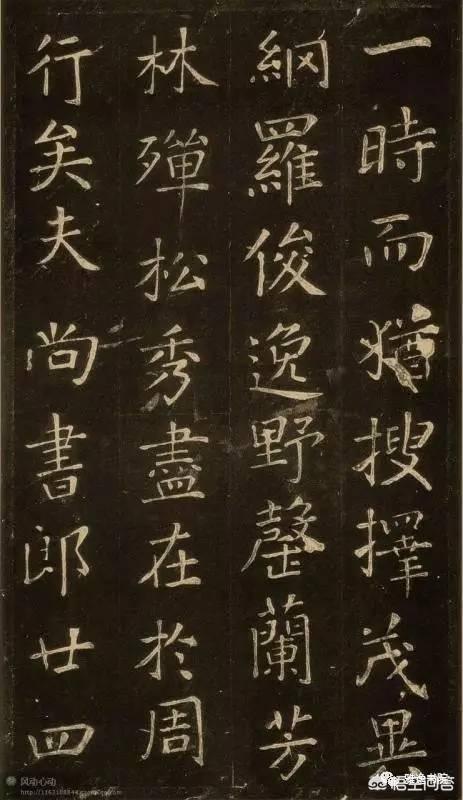 一時而猶搜擇茂異
網羅俊逸野罄蘭芳
林殫松秀盡在於周
行矣夫尚書郎廿四
风动心动
悟空问答